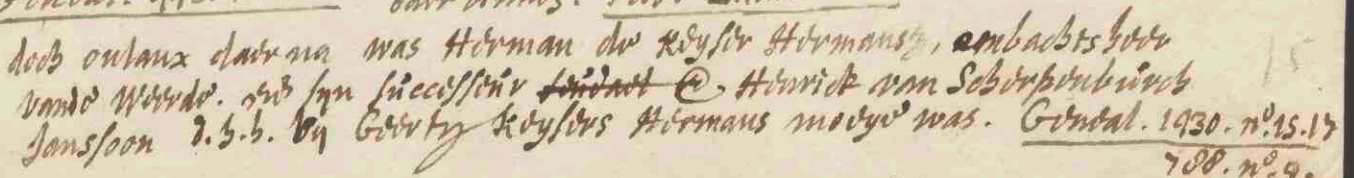 doch onlanx daer na was Herman de Keyser Hermansz, ambachtsheer
vande Weerde. ende syn successeur feudael @. Henrick van Scherpenburch
Janssoon d.z.h. by Geertz Keysers Hermans moeye was. Geneal. 1930. nº.15.17
788. nº.9.